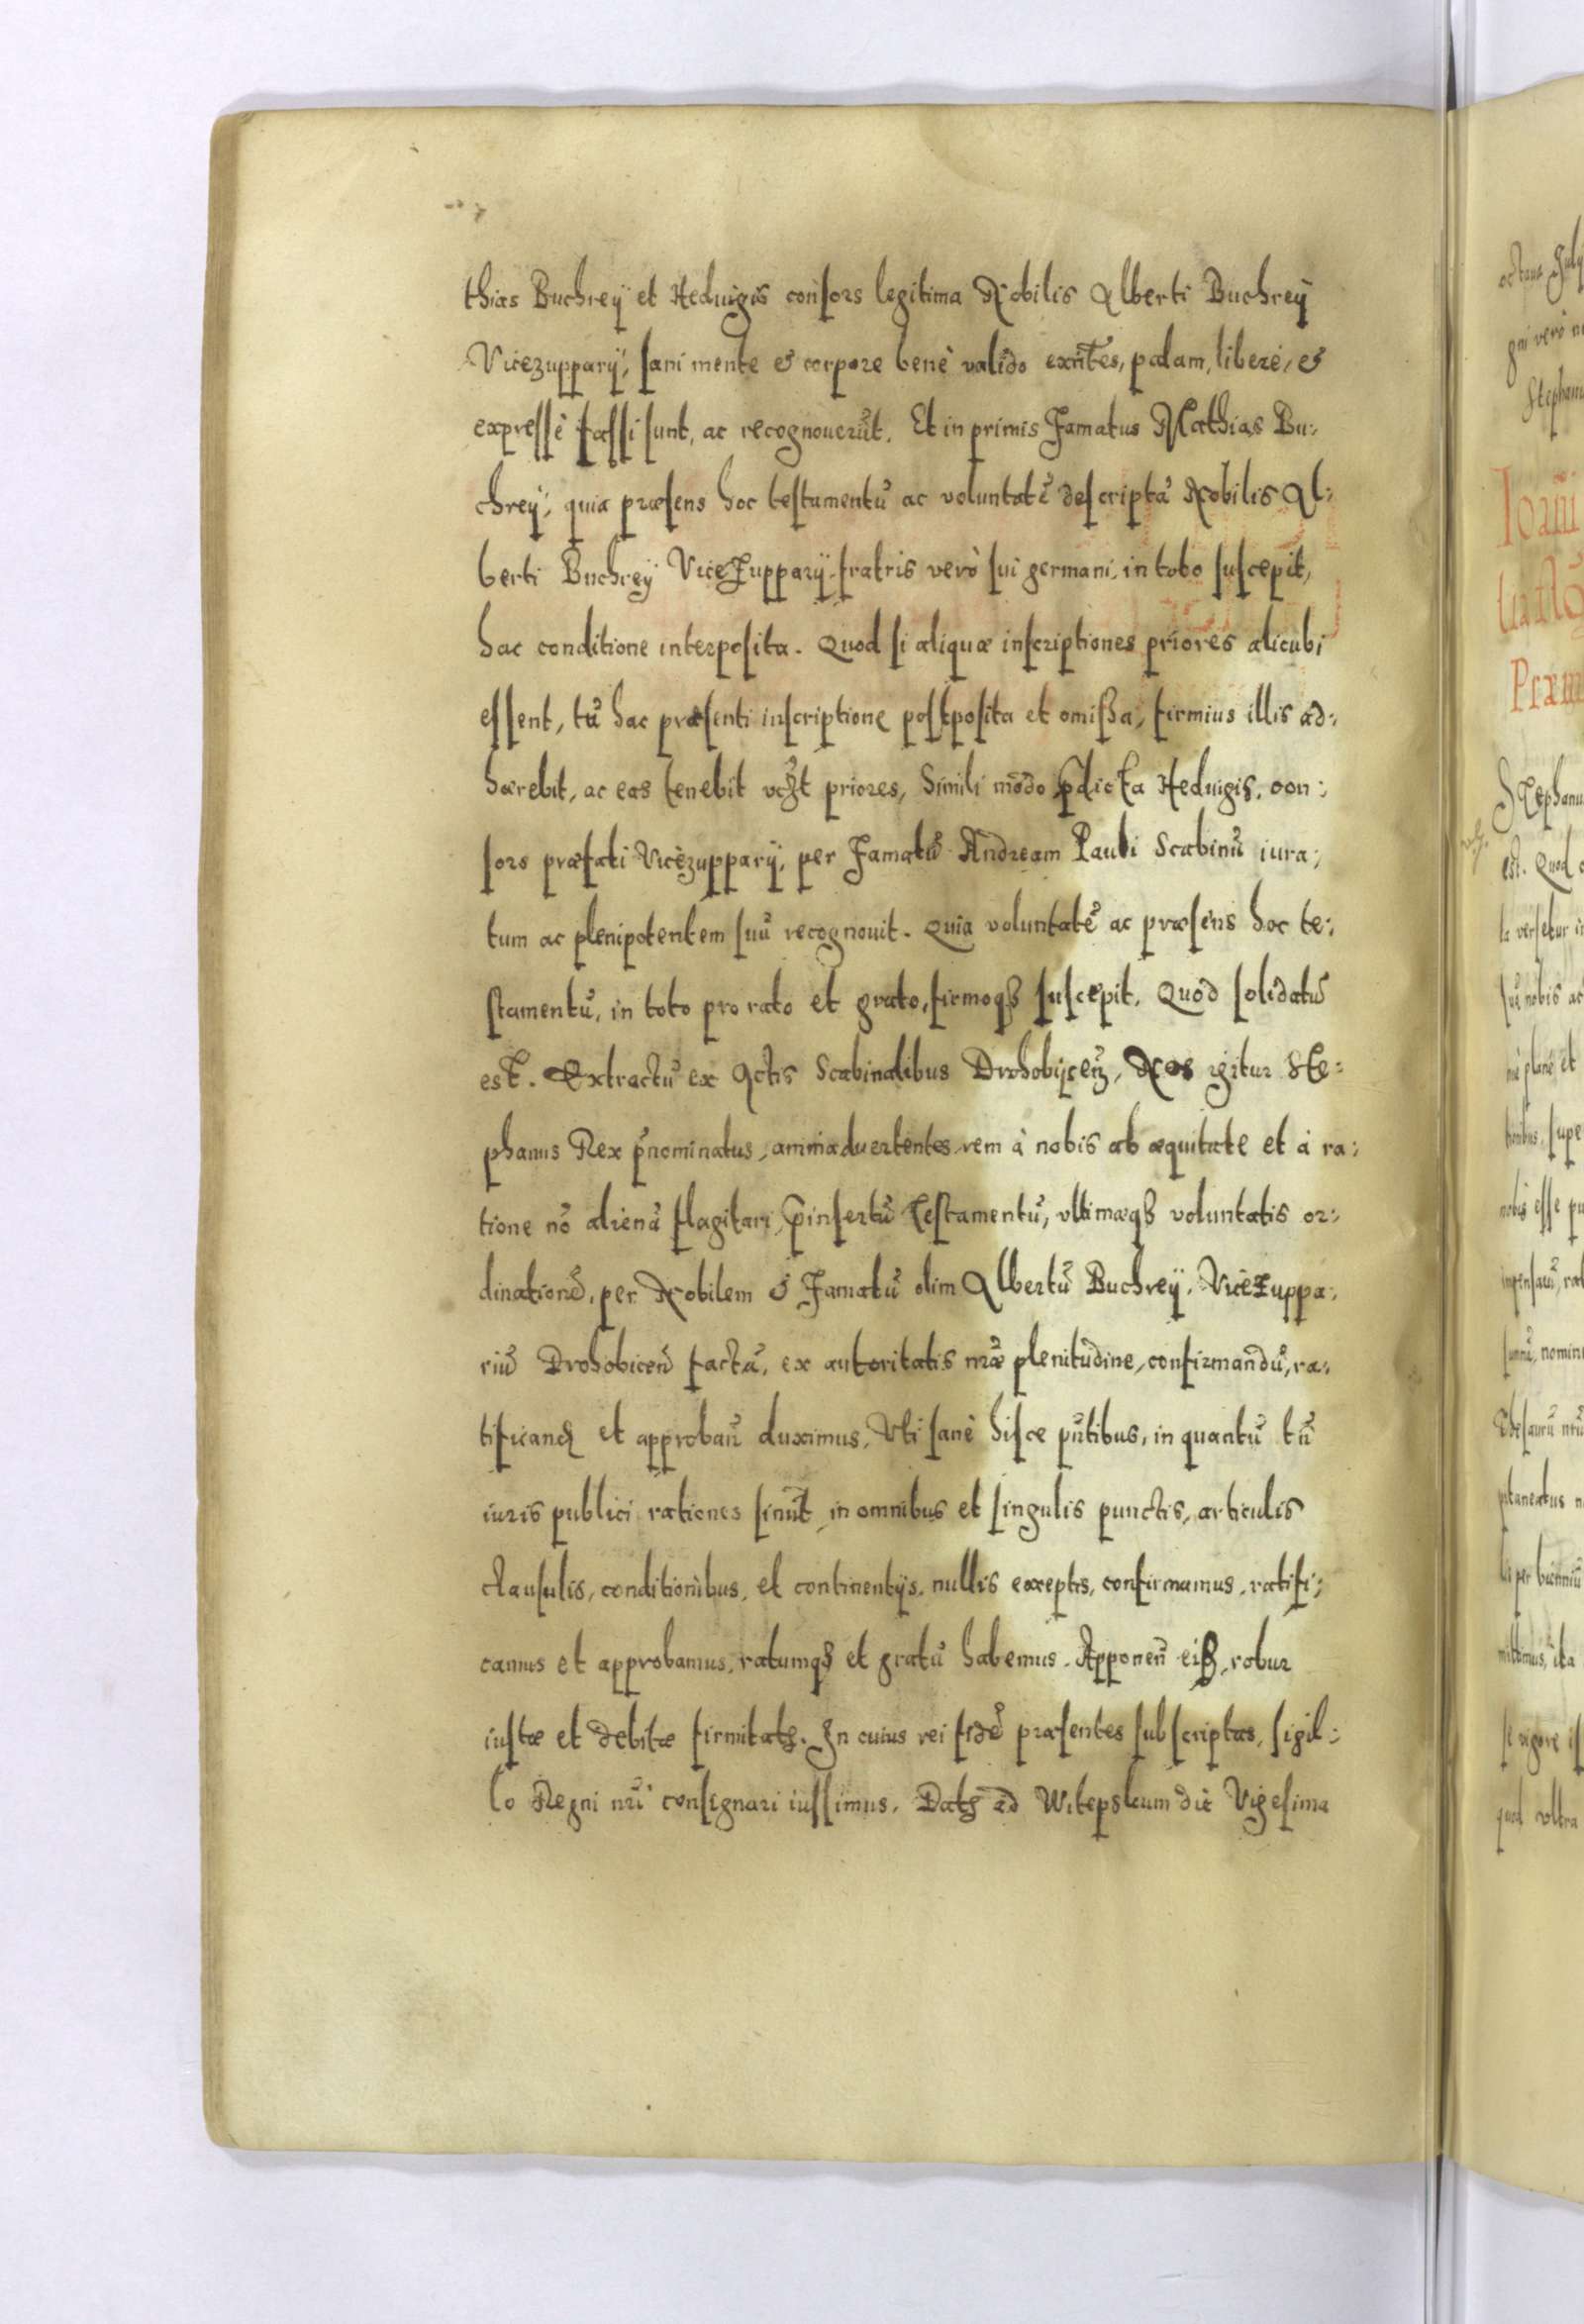 thias Buchreÿ et Heduigis consors legitima Nobilis Alberti Buchreÿ
Vicezupparij, sani mente et corpore benè valido exñtes, palam, liberè, et
expressè fassi sunt, ac recognouerũt. Et in primis Famatus Mathias Bu:
chreÿ, quia præsens hoc testamentũ ac voluntatẽ descriptã Nobilis Al:
berti Buchreÿ Vicezupparij fratris verò sui germani, in toto suscepit,
hac conditione interposita. Quod si aliquæ inscriptiones priores alicubi
essent, tũ hac præsenti inscriptione postposita et omissa, firmius illis ad:
hærebit, ac eas tenebit priores, Simili modo pdicta Heduigis, con:
sors præfati Vicezupparij, per Famatũ Andream Pauli Scabinũ iura:
tum ac plenipotentem suũ recognouit. Quia voluntatẽ ac præsens hoc te:
stamentũ, in toto pro rato et grato, firmoqꝫ suscepit. Quod solidatũ
est. Extractũ ex Actis Scabinalibus Drohobijceñ, Nos igitur Ste:
phanus Rex p̃nominatus, animaduertentes rem à nobis ab æquitate et à ra:
tione nõ alienã flagitari, p̃insertũ Testamentũ, vltimæqꝫ voluntatis or:
dinationẽ, per Nobilem et Famatũ olim Albertũ Buchreÿ, Vicezuppa:
riũ Drohobiceñ factã, ex autoritatis nr̃æ plenitudine, confirmandũ, ra:
tificand et approbañ duximus, Vti sanè hisce pñtibus, in quantũ tñ
iuris publici rationes sinũt, in omnibus et singulis punctis, articulis
clausulis, conditionibus, et continentijs, nullis exceptis, confirmamus, ratifi:
camus et approbamus, ratumqꝫ et gratũ habemus. Apponeñ eisꝫ, robur
iustæ et debitæ firmitatꝭ. In cuius rei fidẽ præsentes subscriptas, sigil:
lo Regni nr̃i consignari iussimus. Datꝭ ad Witepskum die Vigesima